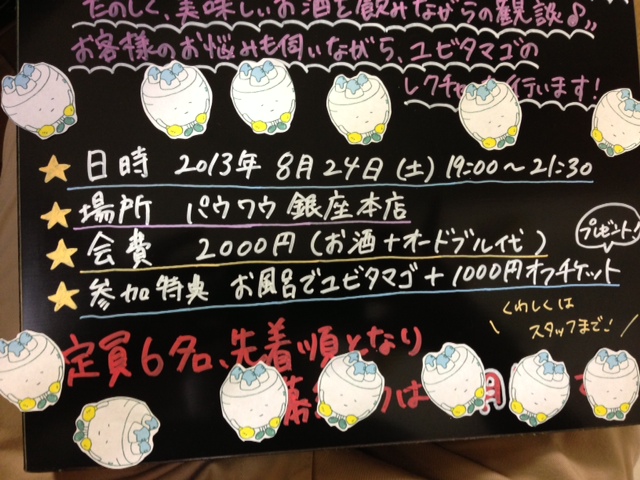 たのしく、美味しいお酒を飲みながらの観談♪
お客様のお悩みも伺いながら、ユビタマゴの
レクチャーを行います!
日時 2013年 8月24日(土) 19:00〜21:30
場所 パウワウ銀座本店
会費 2000円(お酒+オードブル代)
プレゼント!
参加特典 お風呂でユビタマゴ+1000円オフチケット
くわしくは
スタッフまで!
定員6名、先着順となり
は 月